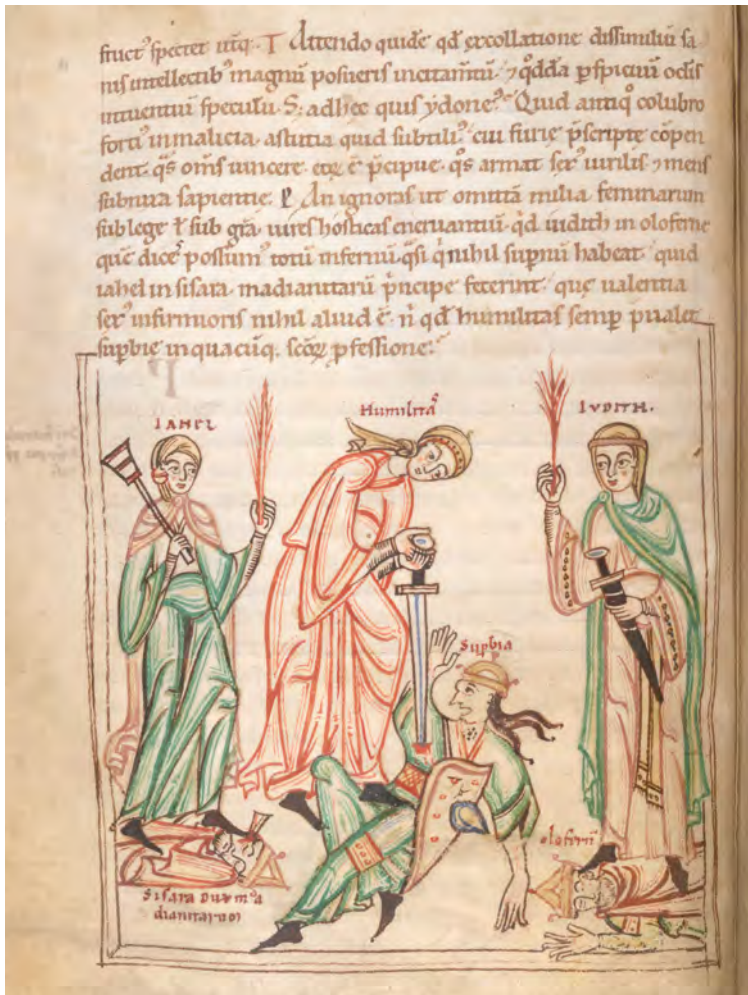 fructꝰ spectet utiq. T Attendo quidē qđ ex collatione dissimiliū sa
nis intellectibꝰ magnū posueris incitam̄tū. ⁊ qͦdda ꝑspicuū oclis
intuentiū speculū. S; adhec quis ydoneꝰ? Quid antiqͦ colubro
fortiꝰ in malicia. astutia quid subtiliꝰ. cui furie p̄scripte cōpen
dent. qͦs om̄s uincere. eoꝝ ē p̄cipue. qͦs armat sexꝰ uirilis ⁊ mens
subnixa sapientie. P An ignoras ut omittā milia feminarum
sub lege ł sub grā. uires hosticas eneruantiū. qͥd iudith in oloferne
quē dicē possumꝰ totū infernū. qͣsi qͥ nihil supnū habeat. quid
iahel in sisara. madianitarū pͥncipe fecerint. que ualentia
sexꝰ infirmioris nihil aliud ē. nͥ qđ humilitas semꝑ p̄ualet
suꝑbie in quacūq. ꝓfessione.
IAHEL
Humilitaˢ
IVDITH.
Suꝑbia
olofernꝰ
Sisara Dux mᵃa
dianitarum